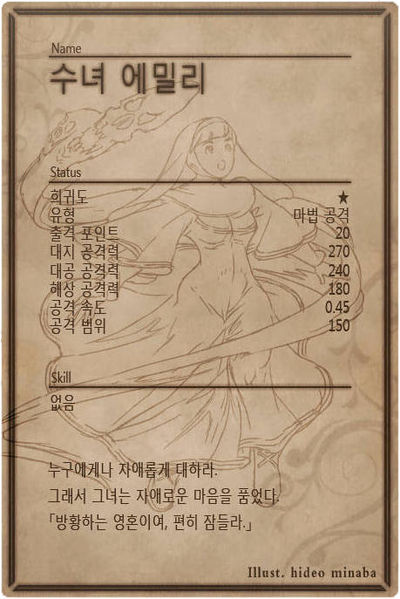 Name
수녀 에밀리
Status
희귀도 ★
유형 마법 공격
출격 포인트 20
대지 공격력 270
대공 공격력 240
해상 공격력 180
공격 속도 0.45
공격 범위 150
Skill
없음
누구에게나 자애롭게 대하라.
그래서 그녀는 자애로운 마음을 품었다.
「방황하는 영혼이여, 편히 잠들라.」
Illust. hideo minaba